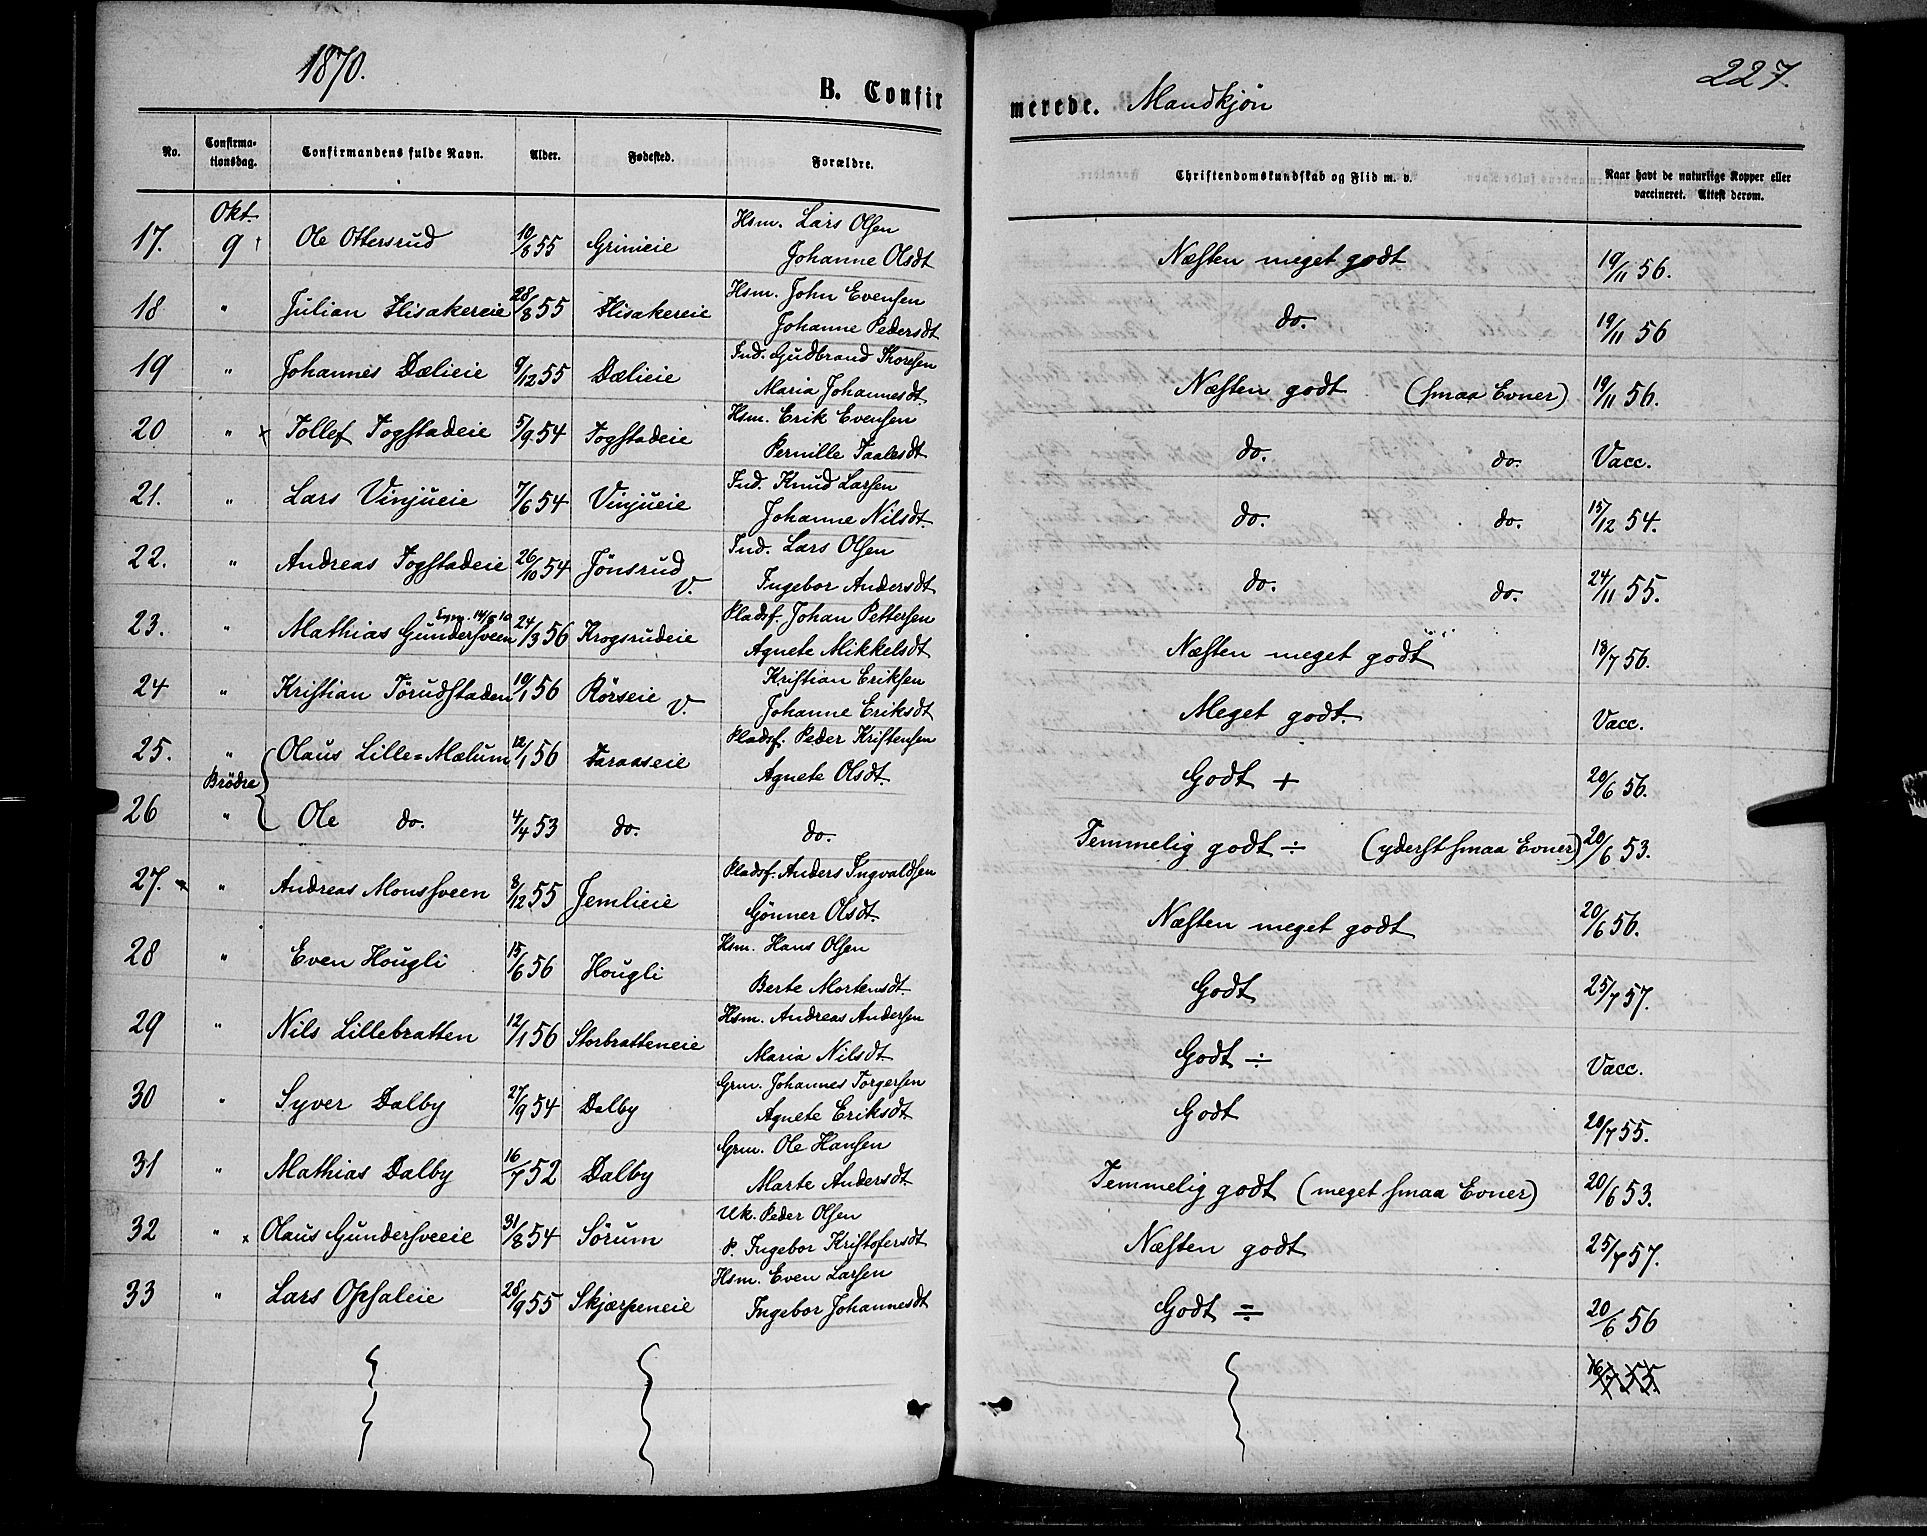 1870.
B. Confirmerede. Mandkjøn
227.
No. | Confirmationsdag. | Confirmandens fulde Navn. | Alder. | Fødested. | Forældre. | Christendomskundskab og Flid m. v. | Naar havt de naturlige Kopper eller vaccineret. Attest derom.
17. | Okt. 9 | Ole Ottersrud | 10/8 55 | Grinieie | Hsm. Lars Olsen Johanne Olsdt | Næsten meget godt | 19/11 56.
18 | " | Julian Flisakereie | 28/8 55 | Flisakereie | Hsm. John Evensen Johanne Pedersdt | do. | 19/11 56
19 | " | Johannes Dælieie | 9/12 55 | Dælieie | Ind. Gudbrand Thoresen Maria Johannesdt. | Næsten godt (smaa Evner) | 19/11 56.
20 | " x | Tollef Togstadeie | 5/9 54 | Togstadeie | Hsm. Erik Evensen Pernille Taalesdt | do. do. | Vacc.
21. | " | Lars Vinjueie | 7/6 54 | Vinjueie | Ind. Knud Larsen Johanne Nilsdt. | do. do. | 15/12 54.
22. | " | Andreas Togstadeie | 26/10 54 | Jönsrud V. | Ind. Lars Olsen Ingebor Andersdt | do. do. | 24/11 55.
23. | " | Mathias Gundersveen | 24/3 56 | Krogsrudeie | Pladsf. Johan Pettersen Agnete Mikkelsdt | Næsten meget godt | 18/7 56.
24 | " | Kristian Törudstaden | 19/1 56 | Rörseie V. | Kristian Eriksen Johanne Eriksdt | Meget godt. | Vacc.
25. | " Brödre | Olaus Lille=Mælum | 12/1 56 | Faraaseie | Pladsf. Peder Kristensen Agnete Olsdt. | Godt + | 20/6 56.
26 | " | Ole do. | 4/4 53 | do. | do. | Temmelig godt ÷ (yderst smaa Evner) | 20/6 53.
27. x | " | Andreas Monsveen | 8/12 55 | Jemlieie | Pladsf. Anders Ingvaldsen Gönner Olsdt. | Næsten meget godt | 20/6 56.
28 | " | Even Hougli | 15/6 56 | Hougli | Hsm. Hans Olsen Berte Mortensdt. | Godt | 25/7 57.
29 | " | Nils Lillebratten | 12/1 56 | Storbratteneie | Hsm. Andreas Andersen Maria Nilsdt. | Godt ÷ | Vacc.
30 | " | Syver Dalby | 27/9 54 | Dalby | Grm. Johannes Torgersen Agnete Eriksdt | Godt | 20/7 55.
31 | " | Mathias Dalby | 16/7 52 | Dalby | Grm. Ole Hansen Marte Andersdt | Temmelig godt (meget smaa Evner) | 20/6 53.
32 | " x | Olaus Gundersveeie | 31/8 54 | Sörum | Uk. Peder Olsen P. Ingebor Kristofersdt | Næsten godt | 25/7 57.
33 | " | Lars Opsaleie | 28/9 55 | Skjærpeneie | Hsm. Even Larsen Ingebor Johannesdt | Godt ÷ | 20/6 56